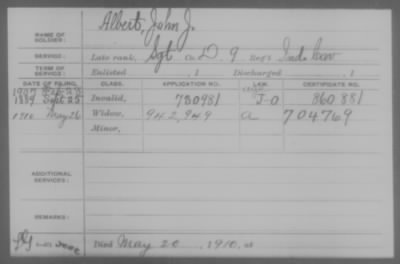 NAME OF SOLDIER: Albert, John J.
SERVICE: Late rank, Sgt Co. D, 9 Reg't Ind. Cav
TERM OF SERVICE: Enlisted , 1 Discharged , 1
DATE OF FILING. CLASS. APPLICATION NO. LAW. CERTIFICATE NO.
1907
1889 Sept 25 Invalid, 730981 J-O 860.881
1910 May 26 Widow, 942,949 a 704769
Minor,
ADDITIONAL SERVICES:
REMARKS:
Died May 20, 1910, at